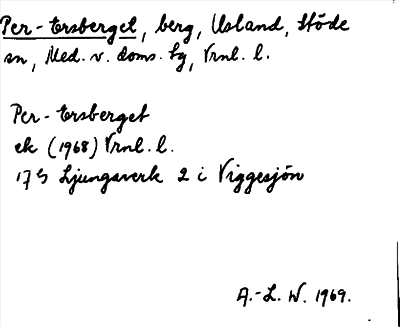 Per-Ersberget, berg, Usland, Stöde
sn, Med. v. doms. tg, Vrnl. l.
Per-Ersberget
ek (1968) Vrnl. l.
17 G Ljungaverk 2 i Viggesjön
A.-L. W. 1969.